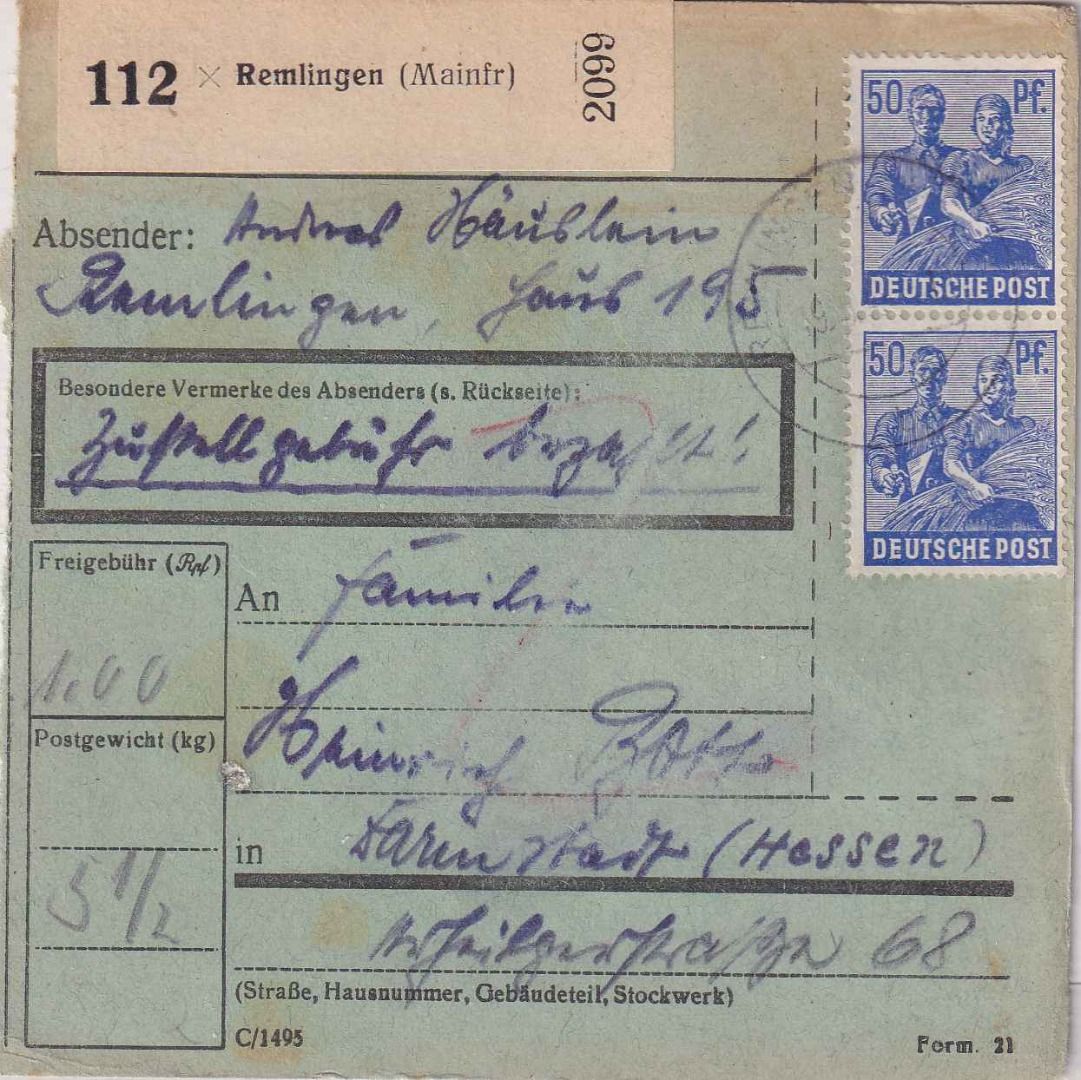 112 × Remlingen (Mainfr) 2099
50 Pf.
DEUTSCHE POST
50 Pf.
DEUTSCHE POST
Absender: Andreas Häuslein
Remlingen, Haus 195
Besondere Vermerke des Absenders (s. Rückseite):
Zustellgebühr bezahlt!
Freigebühr (Rpf)
1.00
Postgewicht (kg)
5 1/2
An Familie
Heinrich
in Darmstadt (Hessen)
Arheilgerstraße 68
(Straße, Hausnummer, Gebäudeteil, Stockwerk)
C/1495
Form. 21